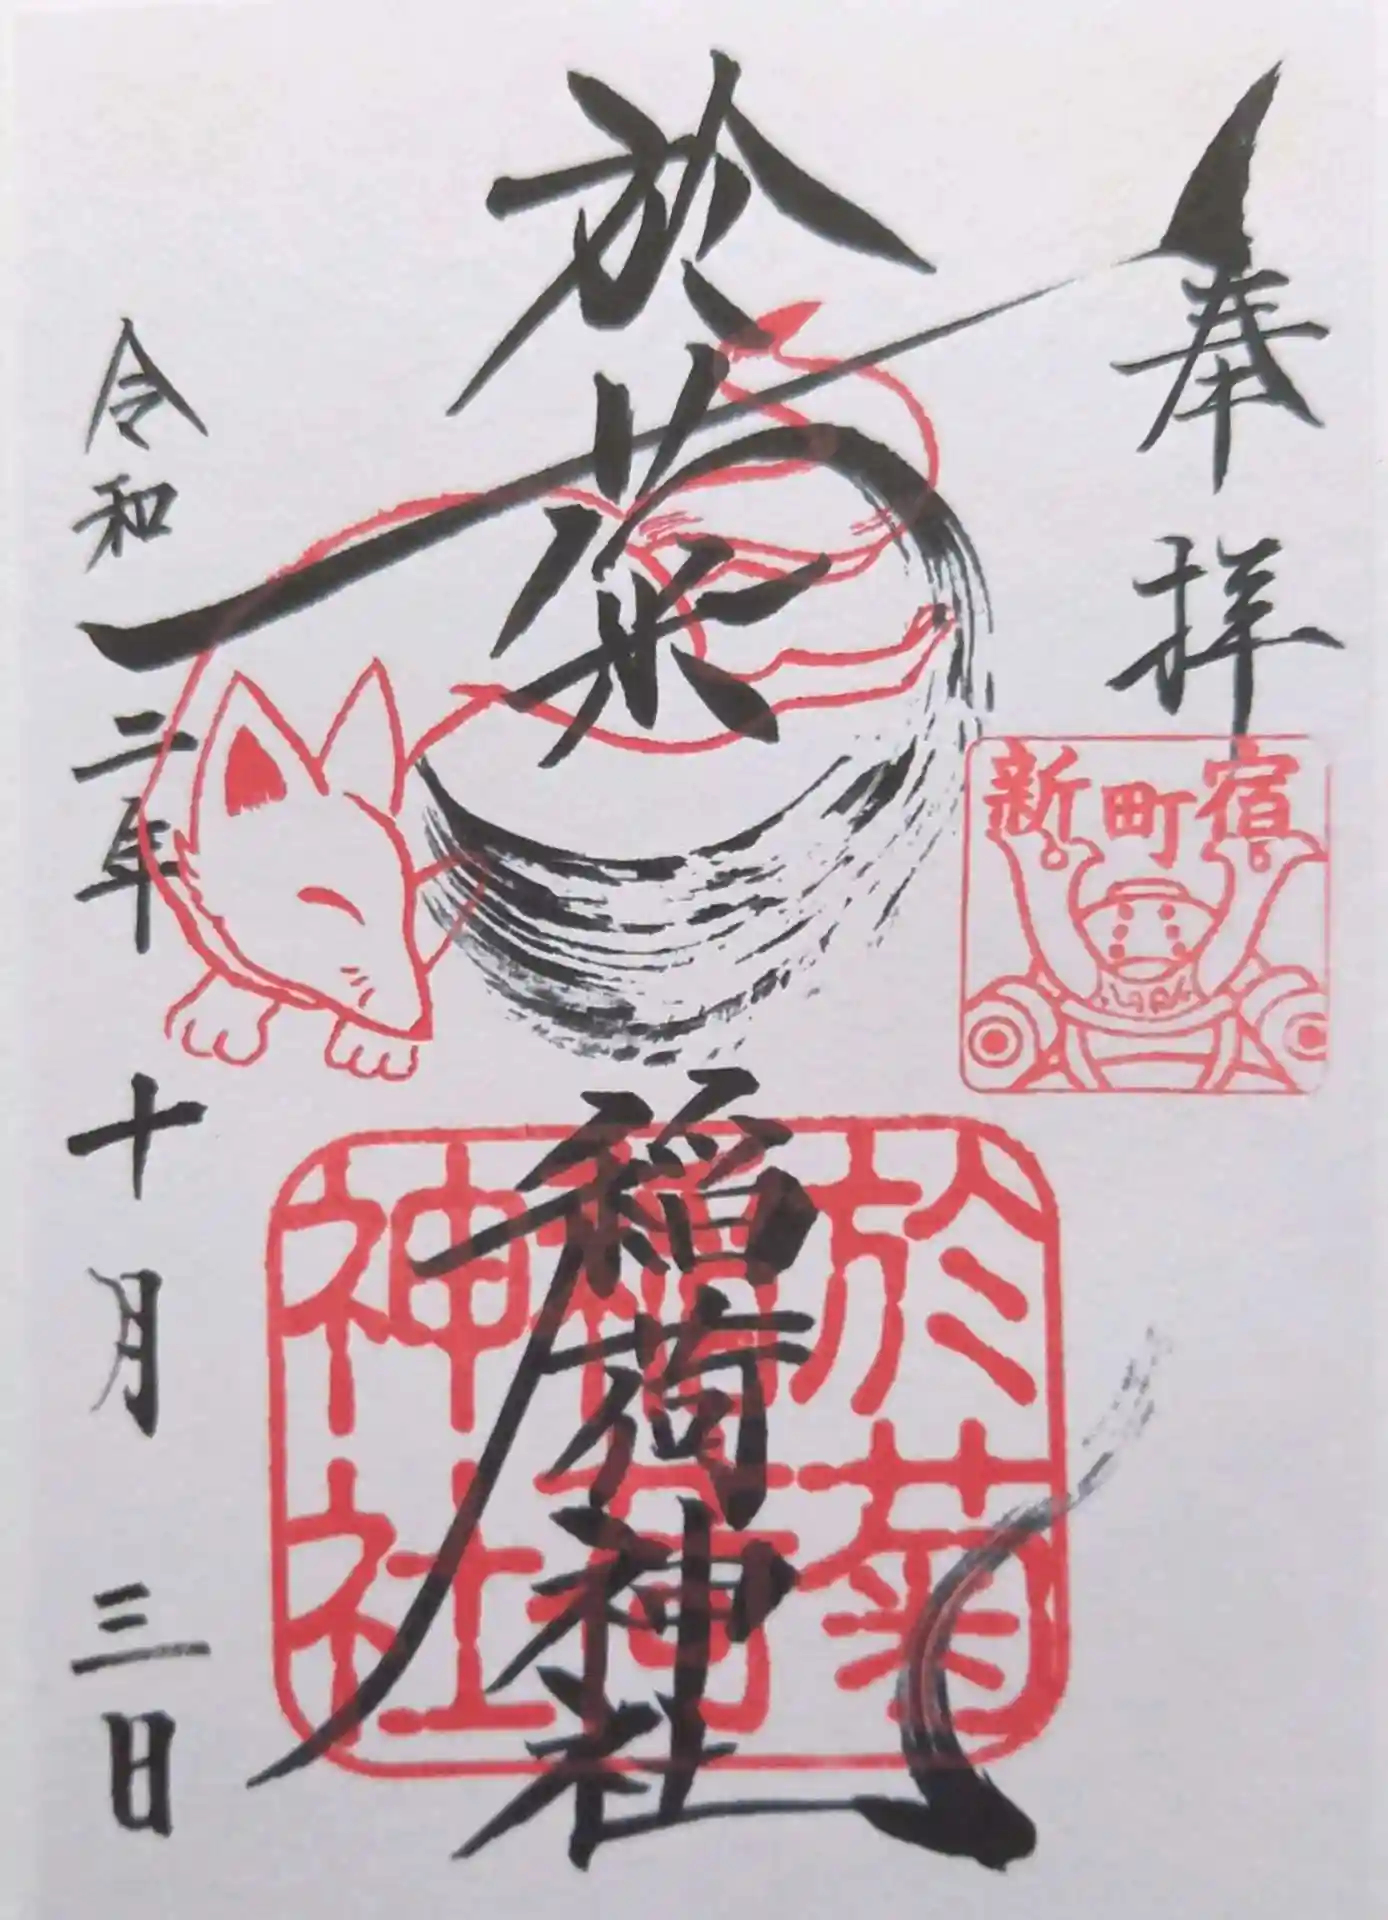 奉拝
新町宿
於菊稲荷神社
於菊
稲荷
神社
令和二年十月三日